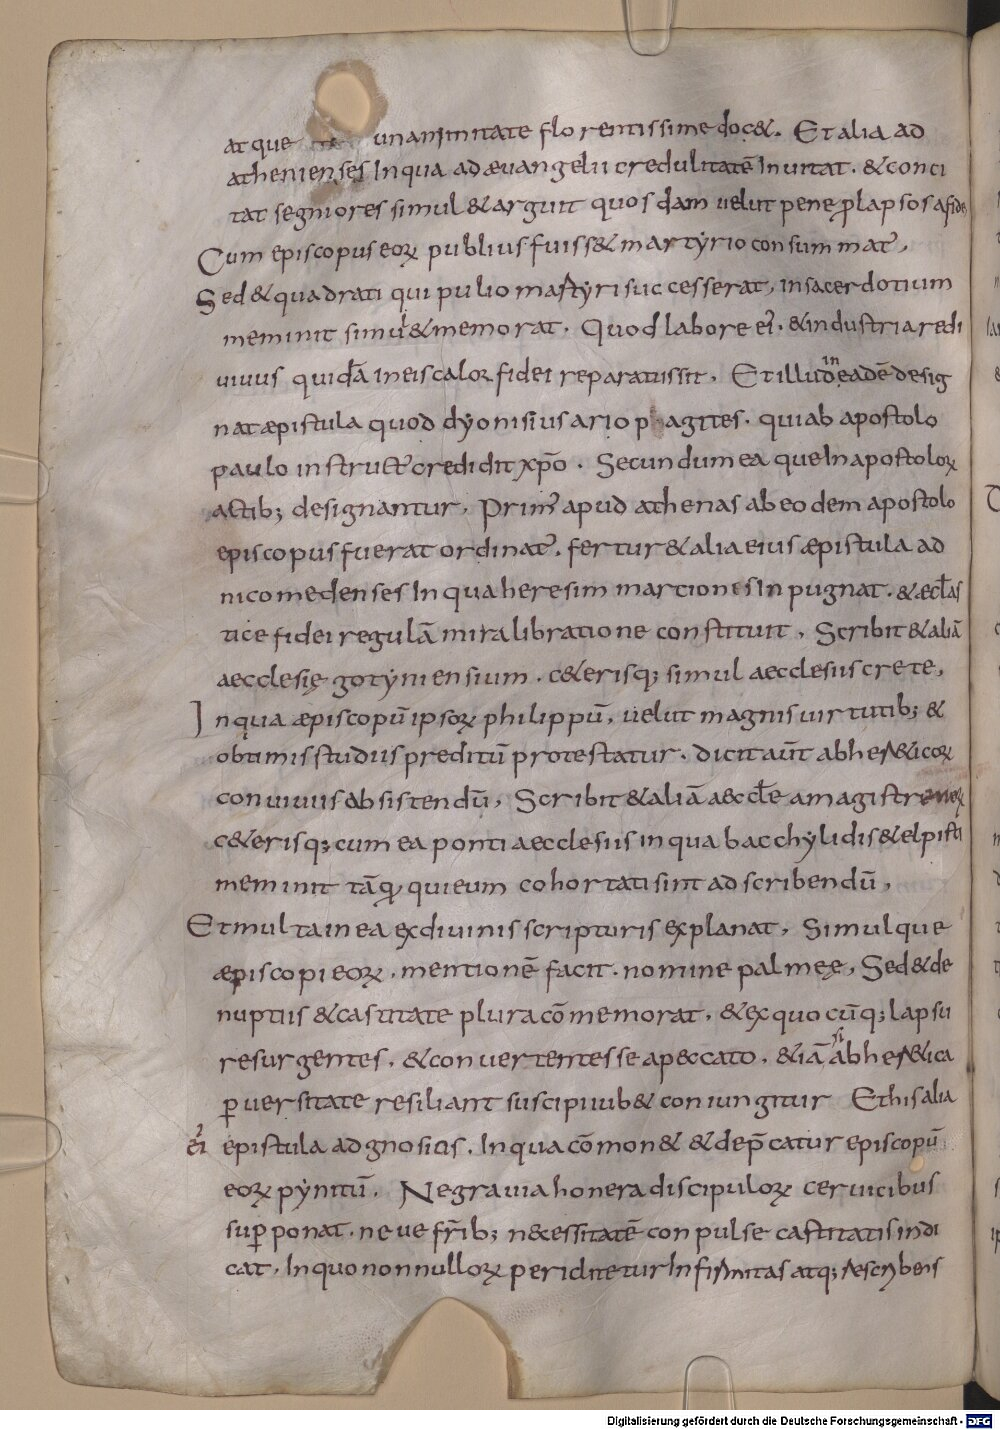 atque unanimitate florentissime doc&. Et alia ad
athenienses In qua ad æuangelii credulitatē Inuitat. & conci
tat segniores simul & arguit quosdam uelut pene ꝓlapsos a fide
Cum episcopus eoꝝ publius fuiss& martÿrio consummat᾽,
Sed & quadrati qui pulio mastÿri successerat, in sacerdotium
meminit simul & memorat. Quod labore ei᾽. & industria redi
uiuus quidā in eis calor fidei reparatus sit. Et illud in eadē desig
nat æpistula quod dÿonisius ariophagites. qui ab apostolo
paulo instruct᾽ credidit xp̄o. Secundum ea que In apostoloꝝ
actib; designantur. Prim᾽ apud athenas ab eodem apostolo
episcopus fuerat ordinat᾽. fertur & alia eius æpistula ad
nicomedenses In qua heresim martionis Inpugnat. & æcl̄as
tice fidei regulā mira libratione constituit, Scribit & aliā
aecclesię gotÿniensium. c&erisq; simul aecclesiis crete,
In qua æpiscopū ipsoꝝ philippū, uelut magnis uirtutib; &
obtimis studiis preditū protestatur. dicit aūt ab her&icoꝝ
conuiuiis absistendū, Scribit & aliā aeccl̄e amagistreneꝝ
c&erisq; cum ea ponti aecclesiis in qua bacchÿlidis & elpisti
meminit tāq quieum cohortati sint ad scribendū,
Et multa in ea ex diuinis scripturis explanat, Simulque
æpiscopi eoꝝ. mentionē facit. nomine palmeę, Sed & de
nuptiis & castitate plura cōmemorat, & ex quo cūq; lapsu
resurgentes. & conuertentes se a peccato. &iā si ab her&ica
ꝑuersitate resiliant suscipi iub& coniungitur Et his alia
ei᾽ epistula ad gnosios. In qua cōmon& & dep̄catur episcopū
eoꝝ pÿnitū. Ne grauia honera discipuloꝝ ceruicibus
suꝑponat. neue fr̄ib; necessitatē conpulse castitatis indi
cat, In quo nonnulloꝝ periditetur Infirmitas atq; rescribens
Digitalisierung gefördert durch die Deutsche Forschungsgemeinschaft - DFG